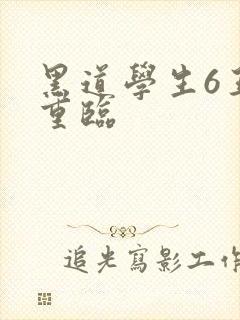 黑道學生6王
重臨
追光寫影工作